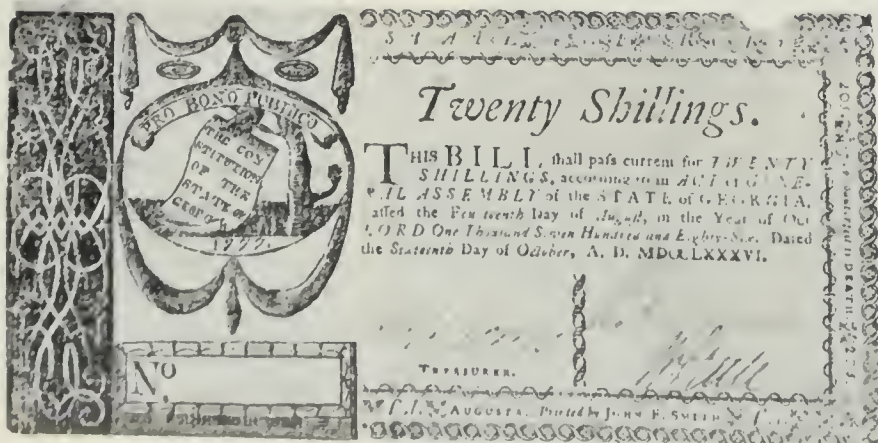 PRO BONO PUBLICO
THE CON
STITUTION
OF THE
STATE OF
GEORG
1777
No.
Twenty Shillings.
THIS BILL, shall pass current for TWENTY
SHILLINGS, according to an ACT of GENE-
RAL ASSEMBLY of the STATE of GEORGIA,
passed the Fourteenth Day of August, in the Year of Our
LORD One Thousand Seven Hundred and Eighty-Six. Dated
the Sixteenth Day of October, A. D. MDCCLXXXVI.
TREASURER.
AUGUSTA. Printed by JOHN E. SMITH
DEATH